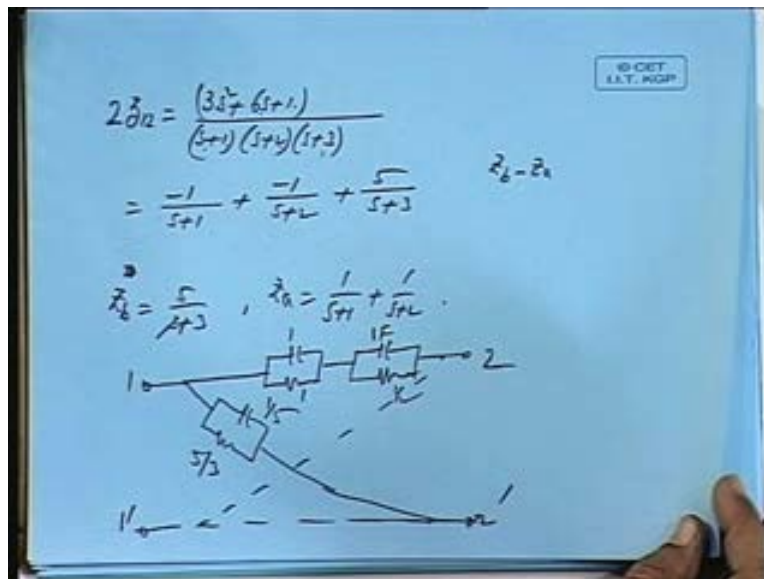 © CET
I.I.T. KGP
2z12 = (3s²+6s+1.) / (s+1)(s+2)(s+3)
= -1/(s+1) + -1/(s+2) + 5/(s+3)
Zb - Za
Zb = 5/(s+3) , Za = 1/(s+1) + 1/(s+2) .
1 1F
1 2
1 1/2
1/5
5/3
1' 2'